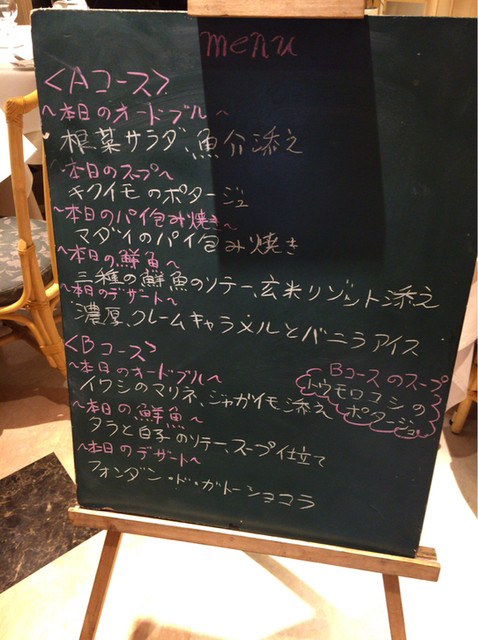 menu
＜Aコース＞
～本日のオードブル～
根菜サラダ、魚介添え
～本日のスープ～
キクイモのポタージュ
～本日のパイ包み焼き～
マダイのパイ包み焼き
～本日の鮮魚～
三種の鮮魚のソテー、玄米リゾット添え
～本日のデザート～
濃厚、クレームキャラメルとバニラアイス
＜Bコース＞
～本日のオードブル～
イワシのマリネ、ジャガイモ添え
～本日の鮮魚～
タラと白子のソテー、スープ仕立て
～本日のデザート～
フォンダン・ド・ガトーショコラ
Bコースのスープ
トウモロコシの
ポタージュ